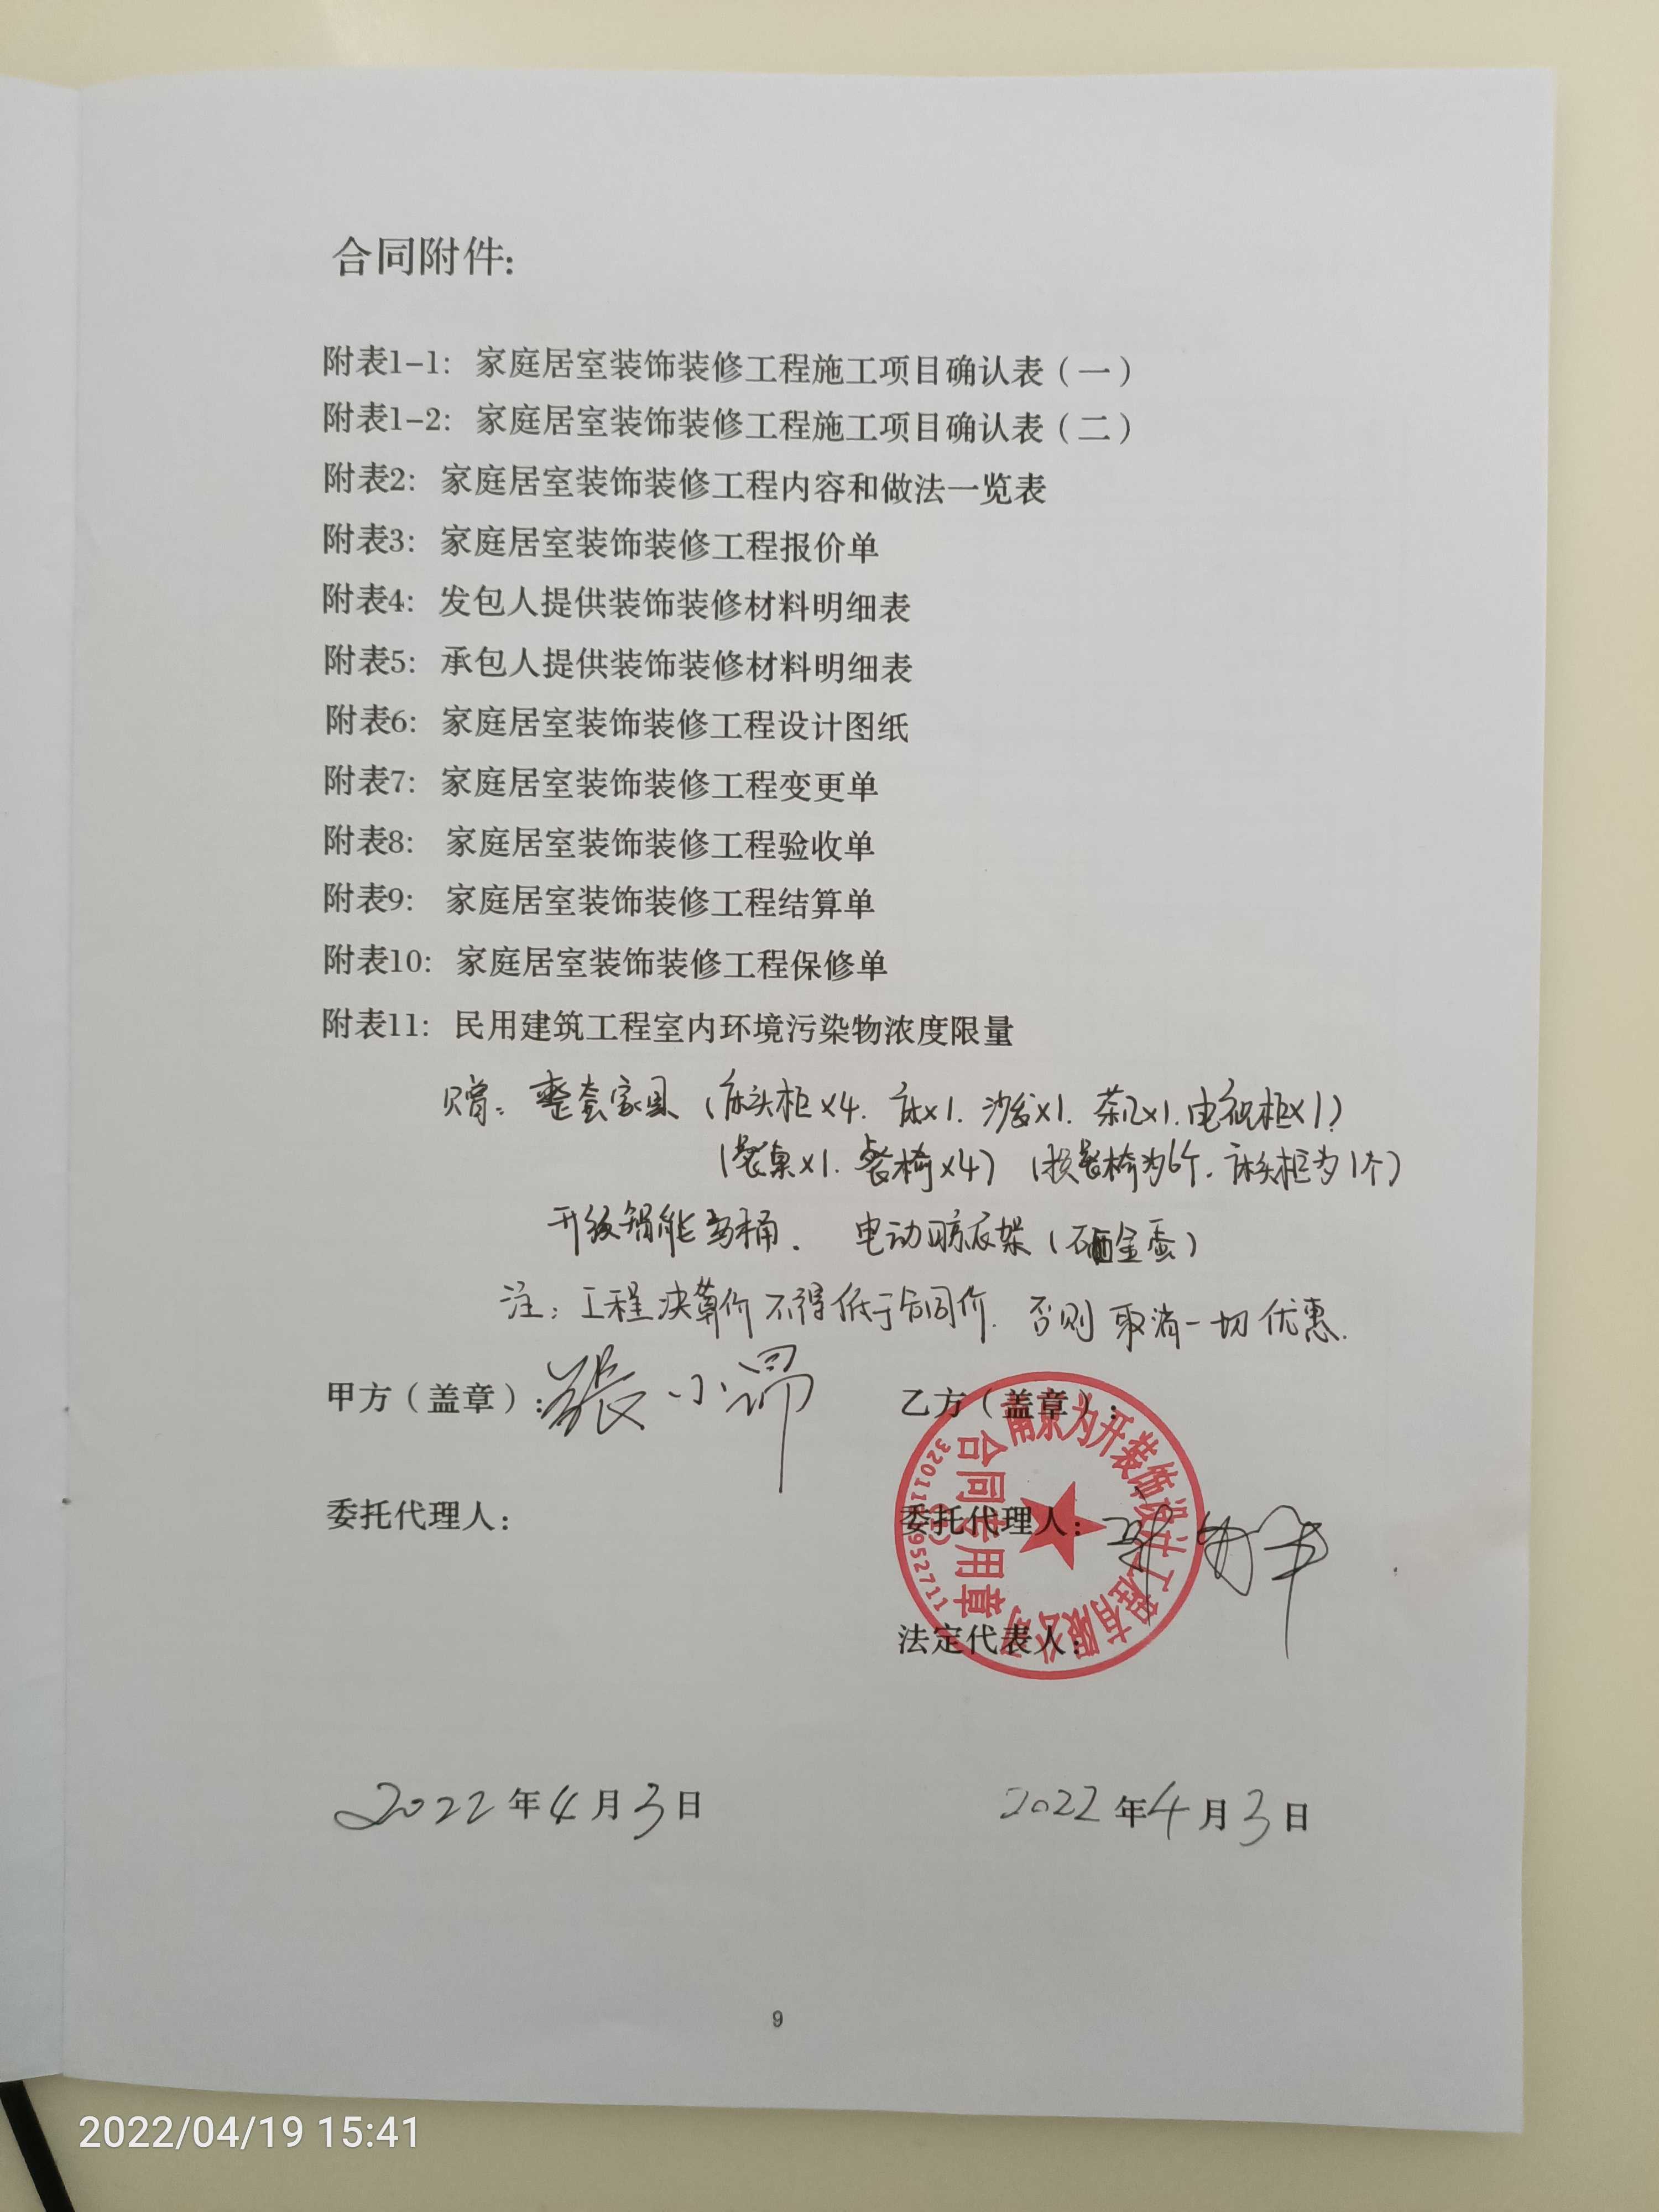 合同附件:
附表1-1: 家庭居室装饰装修工程施工项目确认表（一）
附表1-2: 家庭居室装饰装修工程施工项目确认表（二）
附表2: 家庭居室装饰装修工程内容和做法一览表
附表3: 家庭居室装饰装修工程报价单
附表4: 发包人提供装饰装修材料明细表
附表5: 承包人提供装饰装修材料明细表
附表6: 家庭居室装饰装修工程设计图纸
附表7: 家庭居室装饰装修工程变更单
附表8: 家庭居室装饰装修工程验收单
附表9: 家庭居室装饰装修工程结算单
附表10: 家庭居室装饰装修工程保修单
附表11: 民用建筑工程室内环境污染物浓度限量
赠: 整套家具（床头柜×4. 床×1. 沙发×1. 茶几×1. 电视柜×1）
（餐桌×1. 餐椅×4）（换餐椅为6个. 床头柜为1个）
升级智能马桶. 电动晾衣架（砸金蛋）
注: 工程决算价不得低于合同价. 否则取消一切优惠.
甲方（盖章）: 張小
乙方（盖章）:
南京为开装饰设计工程有限公司
合同专用章
委托代理人:
委托代理人:
法定代表人:
2022年4月3日
2022年4月3日
9
2022/04/19 15:41